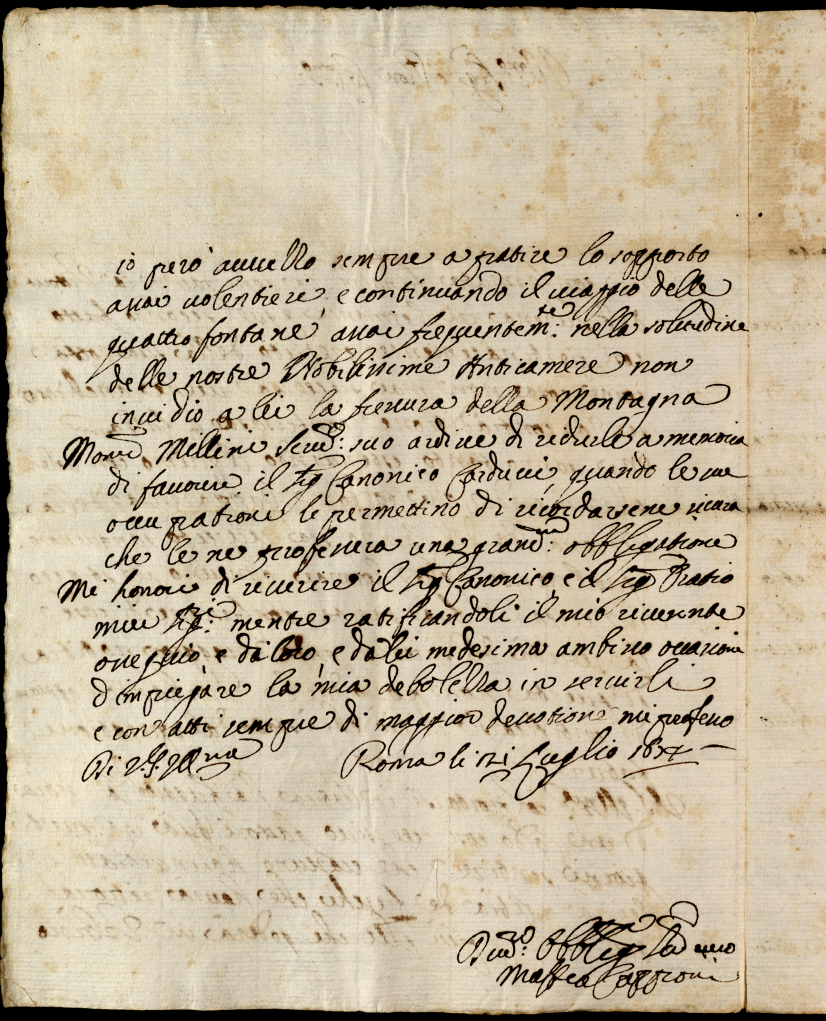 io però avvezzo sempre a patire lo sopporto
assai volentieri, e continuando il viaggio delle
quattro fontane assai frequentem.te nella solitudine
delle nostre Nobilissime Anticamere non
invidio a lei la frescura della Montagna
Mons.r Mellini suo ardire di ridurle a memoria
di favorire il Sig Canonico Carducci, quando le sue
occupationi le permettino di ricordarsene
che le ne professera una grand.ma obbligatione
Mi honori di riverire il Sig Canonico, e il Sig
miei Sig.ri mentre ratificandoli il mio riverente
ossequio, e da loro, e da lei medesima ambisco occasioni
d'impiegare la mia debolezza in servirli
e con atti sempre di maggior devotione mi professo
Di V.S. Ill.ma Roma li 21 Luglio
Div.mo Obblig
Maffeo